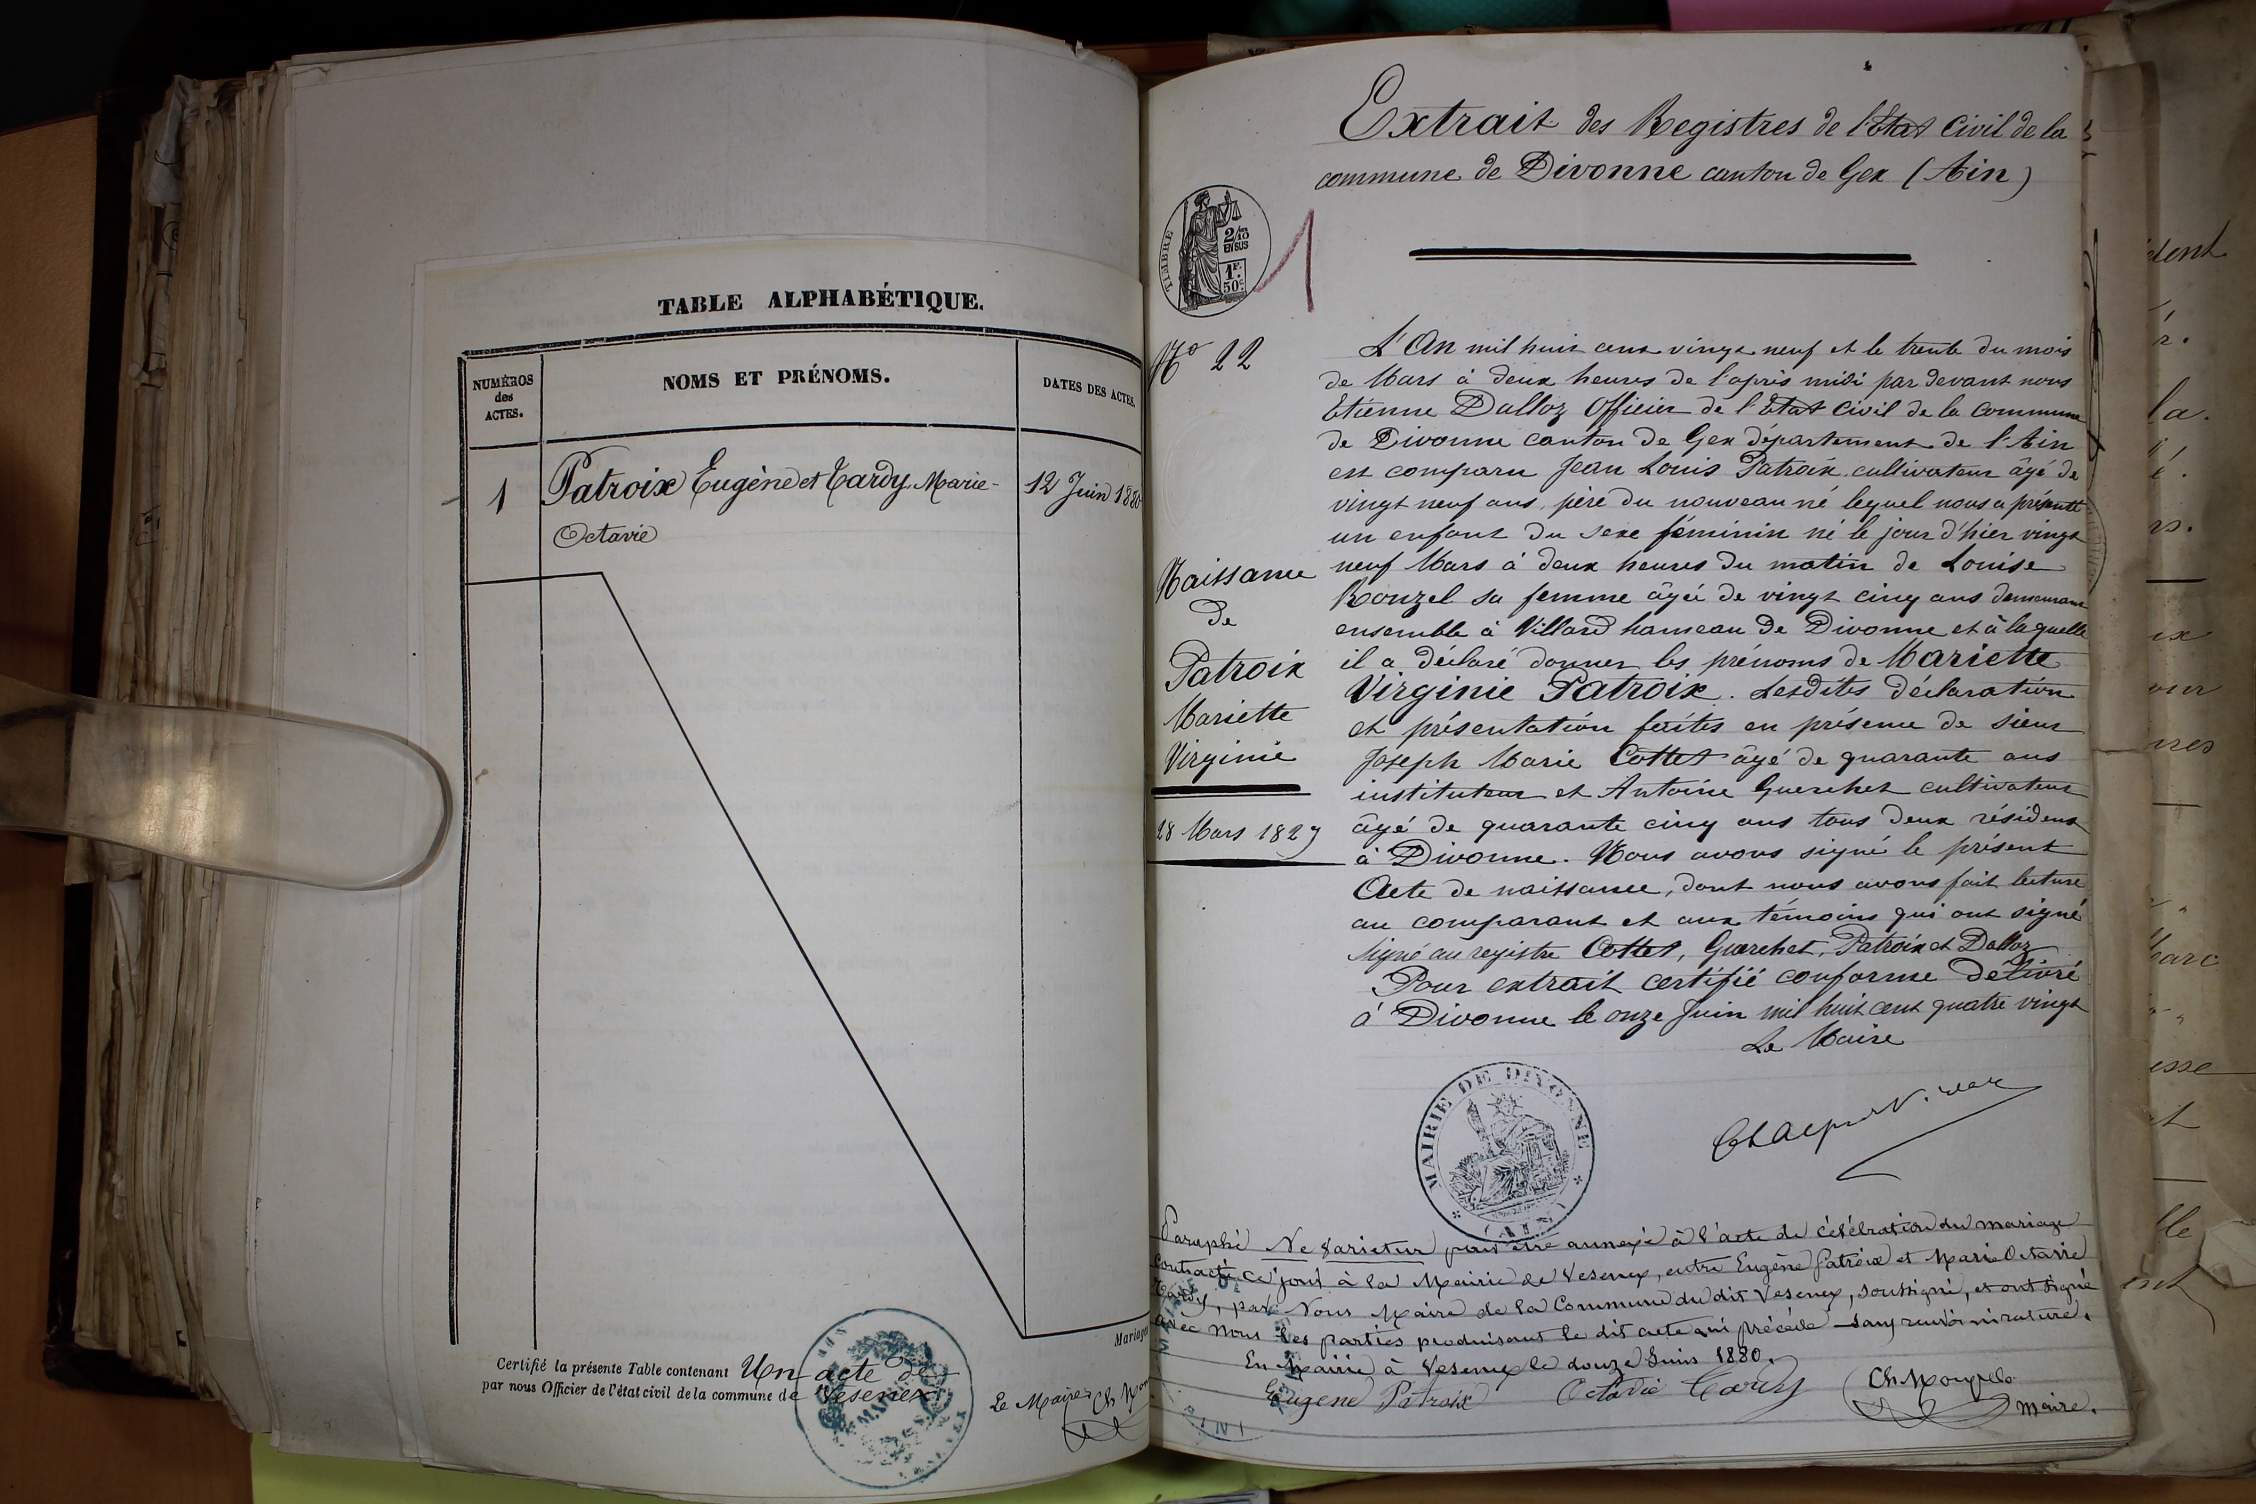 TABLE ALPHABÉTIQUE.
NUMÉROS
des
ACTES.
NOMS ET PRÉNOMS.
DATES DES ACTES.
1
Patroix Eugène et Tardy Marie-
Octavie
12 Juin 1880
Mariages
Certifié la présente Table contenant Un acte de
par nous Officier de l'état civil de la commune de Vesenex
Le Maire, Ch
Extrait des Registres de l'Etat Civil de la
commune de Divonne canton de Gex (Ain)
TIMBRE
2/10
EN SUS
1F.
50c
1
No 22
Naissance
de
Patroix
Mariette
Virginie
28 Mars 1829
L'An mil huit cent vingt neuf et le trente du mois
de Mars à deux heures de l'après midi par devant nous
Etienne Dalloz Officier de l'Etat Civil de la Commune
de Divonne canton de Gex département de l'Ain
est comparu Jean Louis Patroix cultivateur âgé de
vingt neuf ans, père du nouveau né lequel nous a présenté
un enfant du sexe féminin né le jour d'hier vingt
neuf Mars à deux heures du matin de Louise
Rouzel sa femme âgée de vingt cinq ans demeurant
ensemble à Villard hameau de Divonne et à laquelle
il a déclaré donner les prénoms de Mariette
Virginie Patroix. Lesdites déclaration
et présentation faites en présence de sieur
Joseph Marie Cottet âgé de quarante ans
instituteur et Antoine Guerchet cultivateur
âgé de quarante cinq ans tous deux résident
à Divonne. Nous avons signé le présent
Acte de naissance, dont nous avons fait lecture
au comparant et aux témoins qui ont signé
signé au registre Cottet, Guerchet, Patroix et Dalloz
Pour extrait certifié conforme délivré
à Divonne le onze Juin mil huit cent quatre vingt
Le Maire
MAIRIE DE DIVONNE
(AIN)
Paraphé Ne Varietur pour être annexé à l'acte de célébration du mariage
contracté ce jour à la Mairie de Vesenex, entre Eugène Patroix et Marie Octavie
Tardy, par Nous Maire de la Commune du dit Vesenex, soussigné, et ont signé
avec nous les parties produisant le dit acte qui précède sans renvoi ni rature.
En Mairie à Vesenex le douze Juin 1880.
Eugène Patroix Octavie Tardy Ch
Maire.